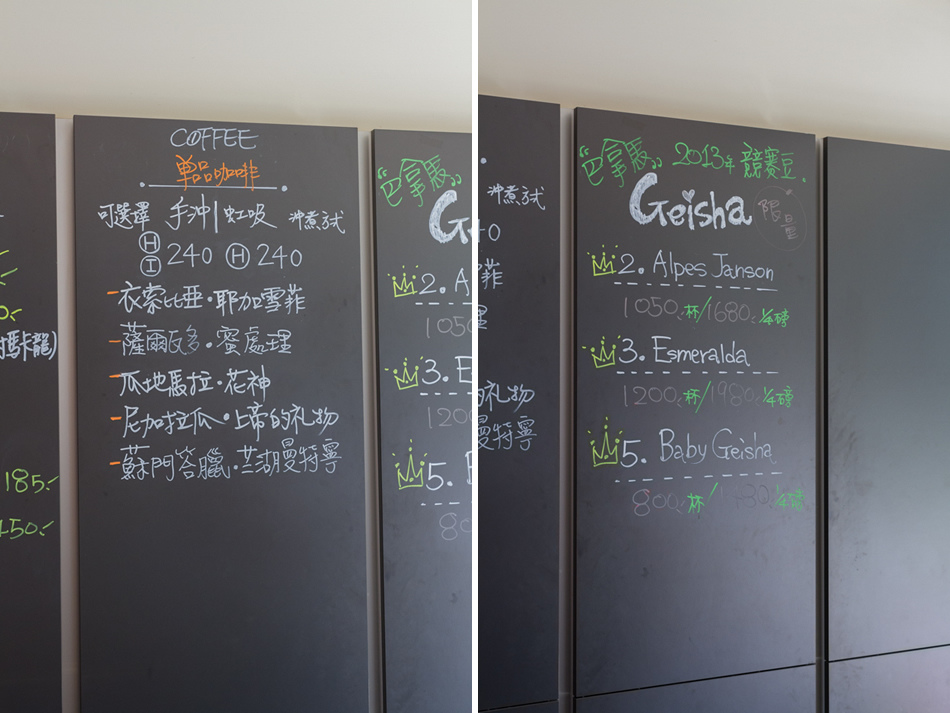 COFFEE
單品咖啡
可選擇 手沖|虹吸 沖煮方式
H 240 H 240
I
-衣索比亞·耶加雪菲
-薩爾瓦多·蜜處理
-瓜地馬拉·花神
-尼加拉瓜·上帝的礼物
-蘇門答臘·兰湖曼特寧
卡龍)
185.-
450.-
"巴拿馬"
2. A
1050
3. E
1200
5. B
80
沖煮方式
40
菲
理
的礼物
曼特寧
"巴拿馬" 2013年 競賽豆.
Geisha 限量
2. Alpes Janson
1050.杯/1680.¼磅
3. Esmeralda
1200.杯/1980.¼磅
5. Baby Geisha
800.杯/1480.¼磅